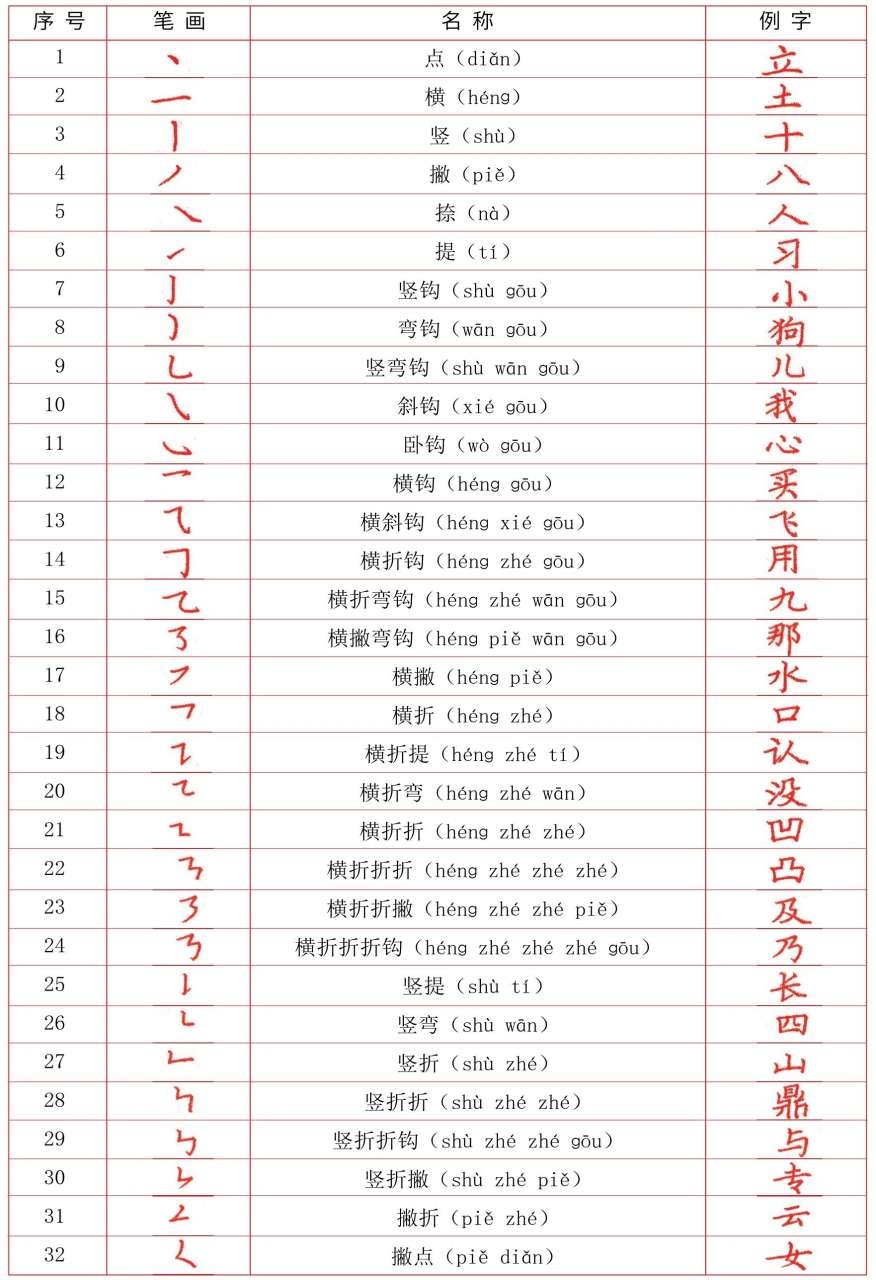 序号 笔画 名称 例字
1 丶 点（diǎn） 立
2 一 横（héng） 土
3 丨 竖（shù） 十
4 丿 撇（piě） 八
5 ㇏ 捺（nà） 人
6 ㇀ 提（tí） 习
7 亅 竖钩（shù gōu） 小
8 ㇁ 弯钩（wān gōu） 狗
9 乚 竖弯钩（shù wān gōu） 儿
10 ㇂ 斜钩（xié gōu） 我
11 ㇃ 卧钩（wò gōu） 心
12 乛 横钩（héng gōu） 买
13 ⺄ 横斜钩（héng xié gōu） 飞
14 𠃌 横折钩（héng zhé gōu） 用
15 乙 横折弯钩（héng zhé wān gōu） 九
16 ㇌ 横撇弯钩（héng piě wān gōu） 那
17 ㇇ 横撇（héng piě） 水
18 𠃍 横折（héng zhé） 口
19 ㇊ 横折提（héng zhé tí） 认
20 ㇍ 横折弯（héng zhé wān） 没
21 ㇅ 横折折（héng zhé zhé） 凹
22 ㇎ 横折折折（héng zhé zhé zhé） 凸
23 ㇋ 横折折撇（héng zhé zhé piě） 及
24 𠄎 横折折折钩（héng zhé zhé zhé gōu） 乃
25 𠄌 竖提（shù tí） 长
26 ㇄ 竖弯（shù wān） 四
27 𠃊 竖折（shù zhé） 山
28 𠃑 竖折折（shù zhé zhé） 鼎
29 ㇉ 竖折折钩（shù zhé zhé gōu） 与
30 ㇞ 竖折撇（shù zhé piě） 专
31 𠃋 撇折（piě zhé） 云
32 𡿨 撇点（piě diǎn） 女